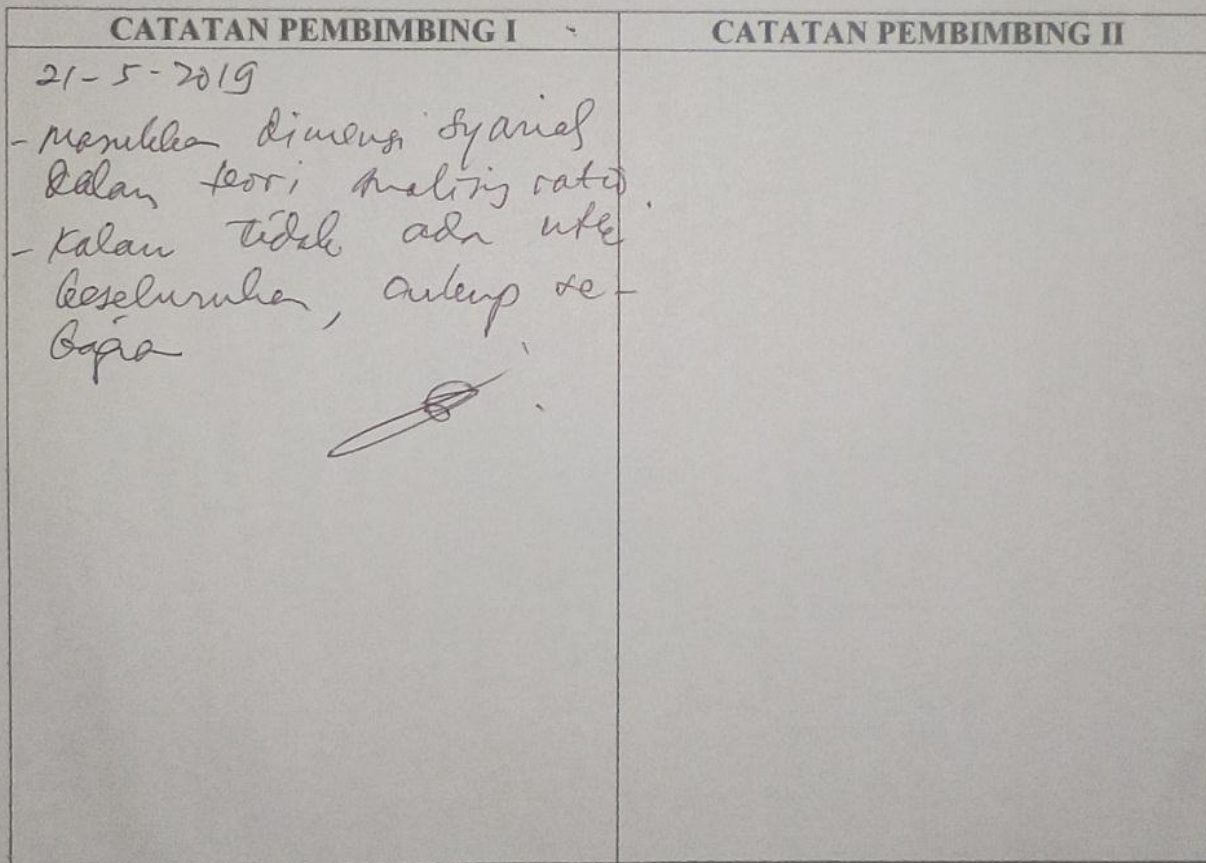 CATATAN PEMBIMBING I
CATATAN PEMBIMBING II
21-5-2019
- masukkan dimensi syariah
dalam teori analisis ratio.
- Kalau tidak ada utk
keseluruhan, cukup se-
bagian